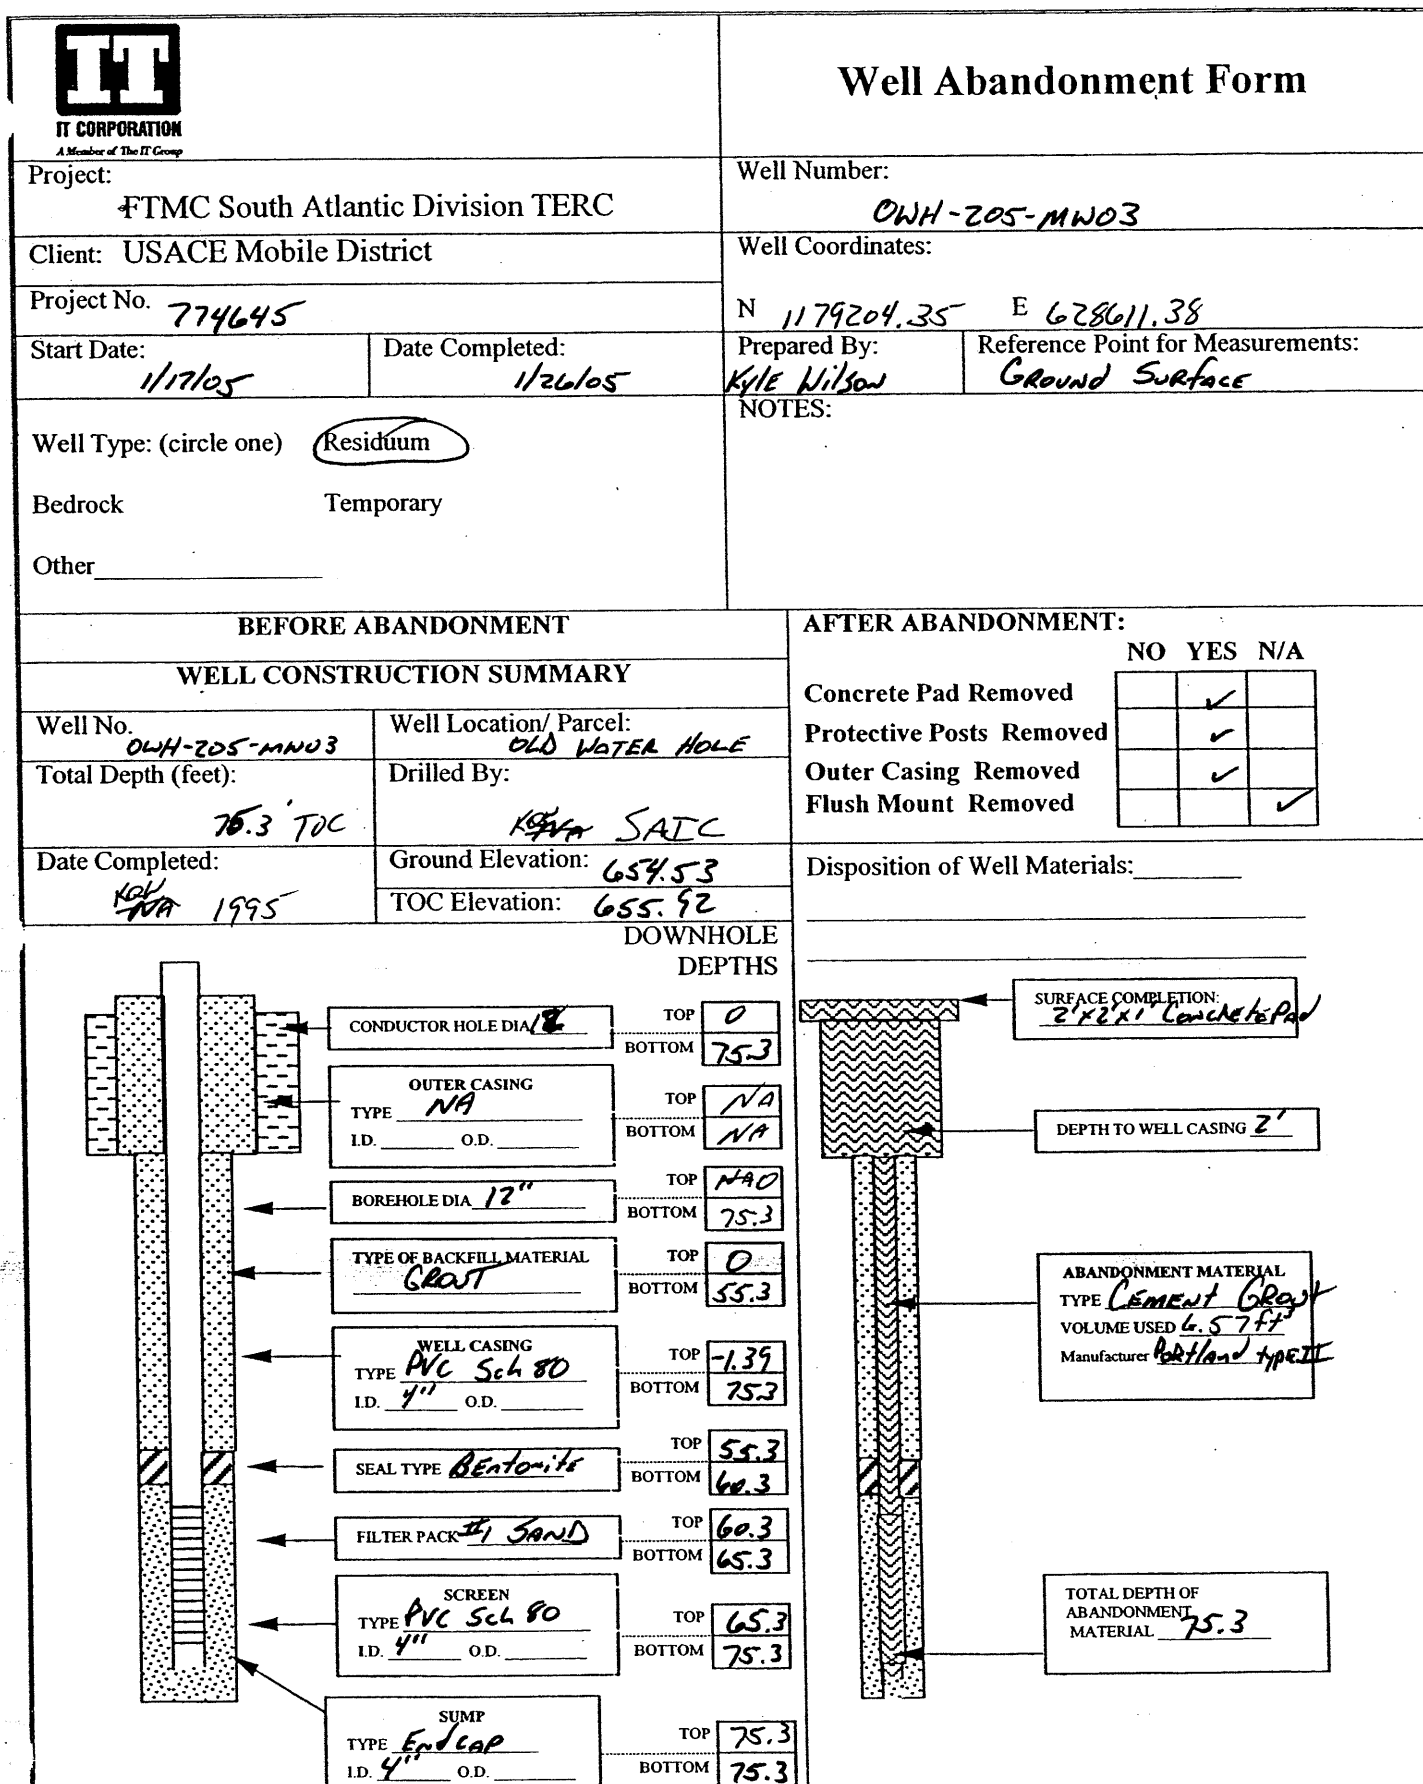 IT
IT CORPORATION
A Member of The IT Group
Well Abandonment Form
Project:
FTMC South Atlantic Division TERC
Well Number:
OWH-205-MW03
Client: USACE Mobile District
Well Coordinates:
N 1179204.35 E 628611.38
Project No. 774645
Start Date:
1/17/05
Date Completed:
1/26/05
Prepared By:
Kyle Wilson
Reference Point for Measurements:
Ground Surface
Well Type: (circle one) Residuum
Bedrock Temporary
Other
NOTES:
BEFORE ABANDONMENT
WELL CONSTRUCTION SUMMARY
Well No.
OWH-205-MW03
Well Location/ Parcel:
OLD WATER HOLE
Total Depth (feet):
75.3' TOC
Drilled By:
NA SAIC
Date Completed:
NA 1995
Ground Elevation: 654.53
TOC Elevation: 655.92
AFTER ABANDONMENT:
NO YES N/A
Concrete Pad Removed ✓
Protective Posts Removed ✓
Outer Casing Removed ✓
Flush Mount Removed ✓
Disposition of Well Materials:
DOWNHOLE
DEPTHS
CONDUCTOR HOLE DIA
TOP 0
BOTTOM 75.3
OUTER CASING
TYPE NA
I.D. O.D.
TOP NA
BOTTOM NA
BOREHOLE DIA 12"
TOP NA 0
BOTTOM 75.3
TYPE OF BACKFILL MATERIAL
GROUT
TOP 0
BOTTOM 55.3
WELL CASING
TYPE PVC Sch 80
I.D. 4" O.D.
TOP -1.39
BOTTOM 75.3
SEAL TYPE Bentonite
TOP 55.3
BOTTOM 60.3
FILTER PACK #1 SAND
TOP 60.3
BOTTOM 65.3
SCREEN
TYPE PVC Sch 80
I.D. 4" O.D.
TOP 65.3
BOTTOM 75.3
SUMP
TYPE End CAP
I.D. 4" O.D.
TOP 75.3
BOTTOM 75.3
SURFACE COMPLETION:
2'x2'x1' Concrete Pad
DEPTH TO WELL CASING 2'
ABANDONMENT MATERIAL
TYPE Cement Grout
VOLUME USED 6.57 ft³
Manufacturer Portland type II
TOTAL DEPTH OF
ABANDONMENT
MATERIAL 75.3